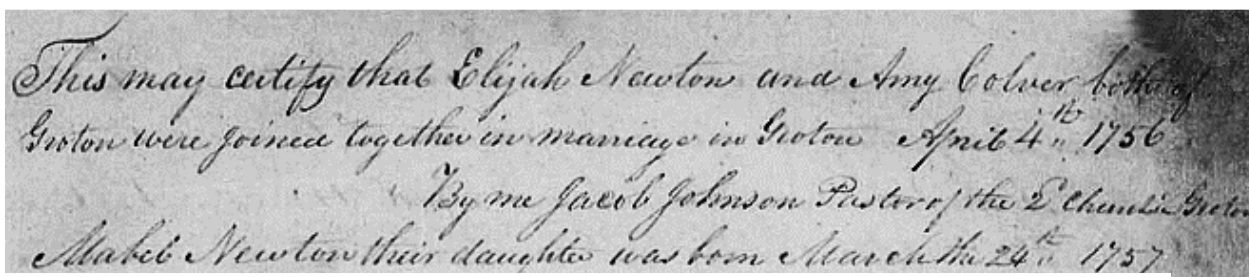 This may certify that Elijah Newton and Amy Colver both of
Groton were joined together in marriage in Groton April 4th 1756
By me Jacob Johnson Pastor of the 2d Church in Groton
Mabel Newton their daughter was born March the 24th 1757